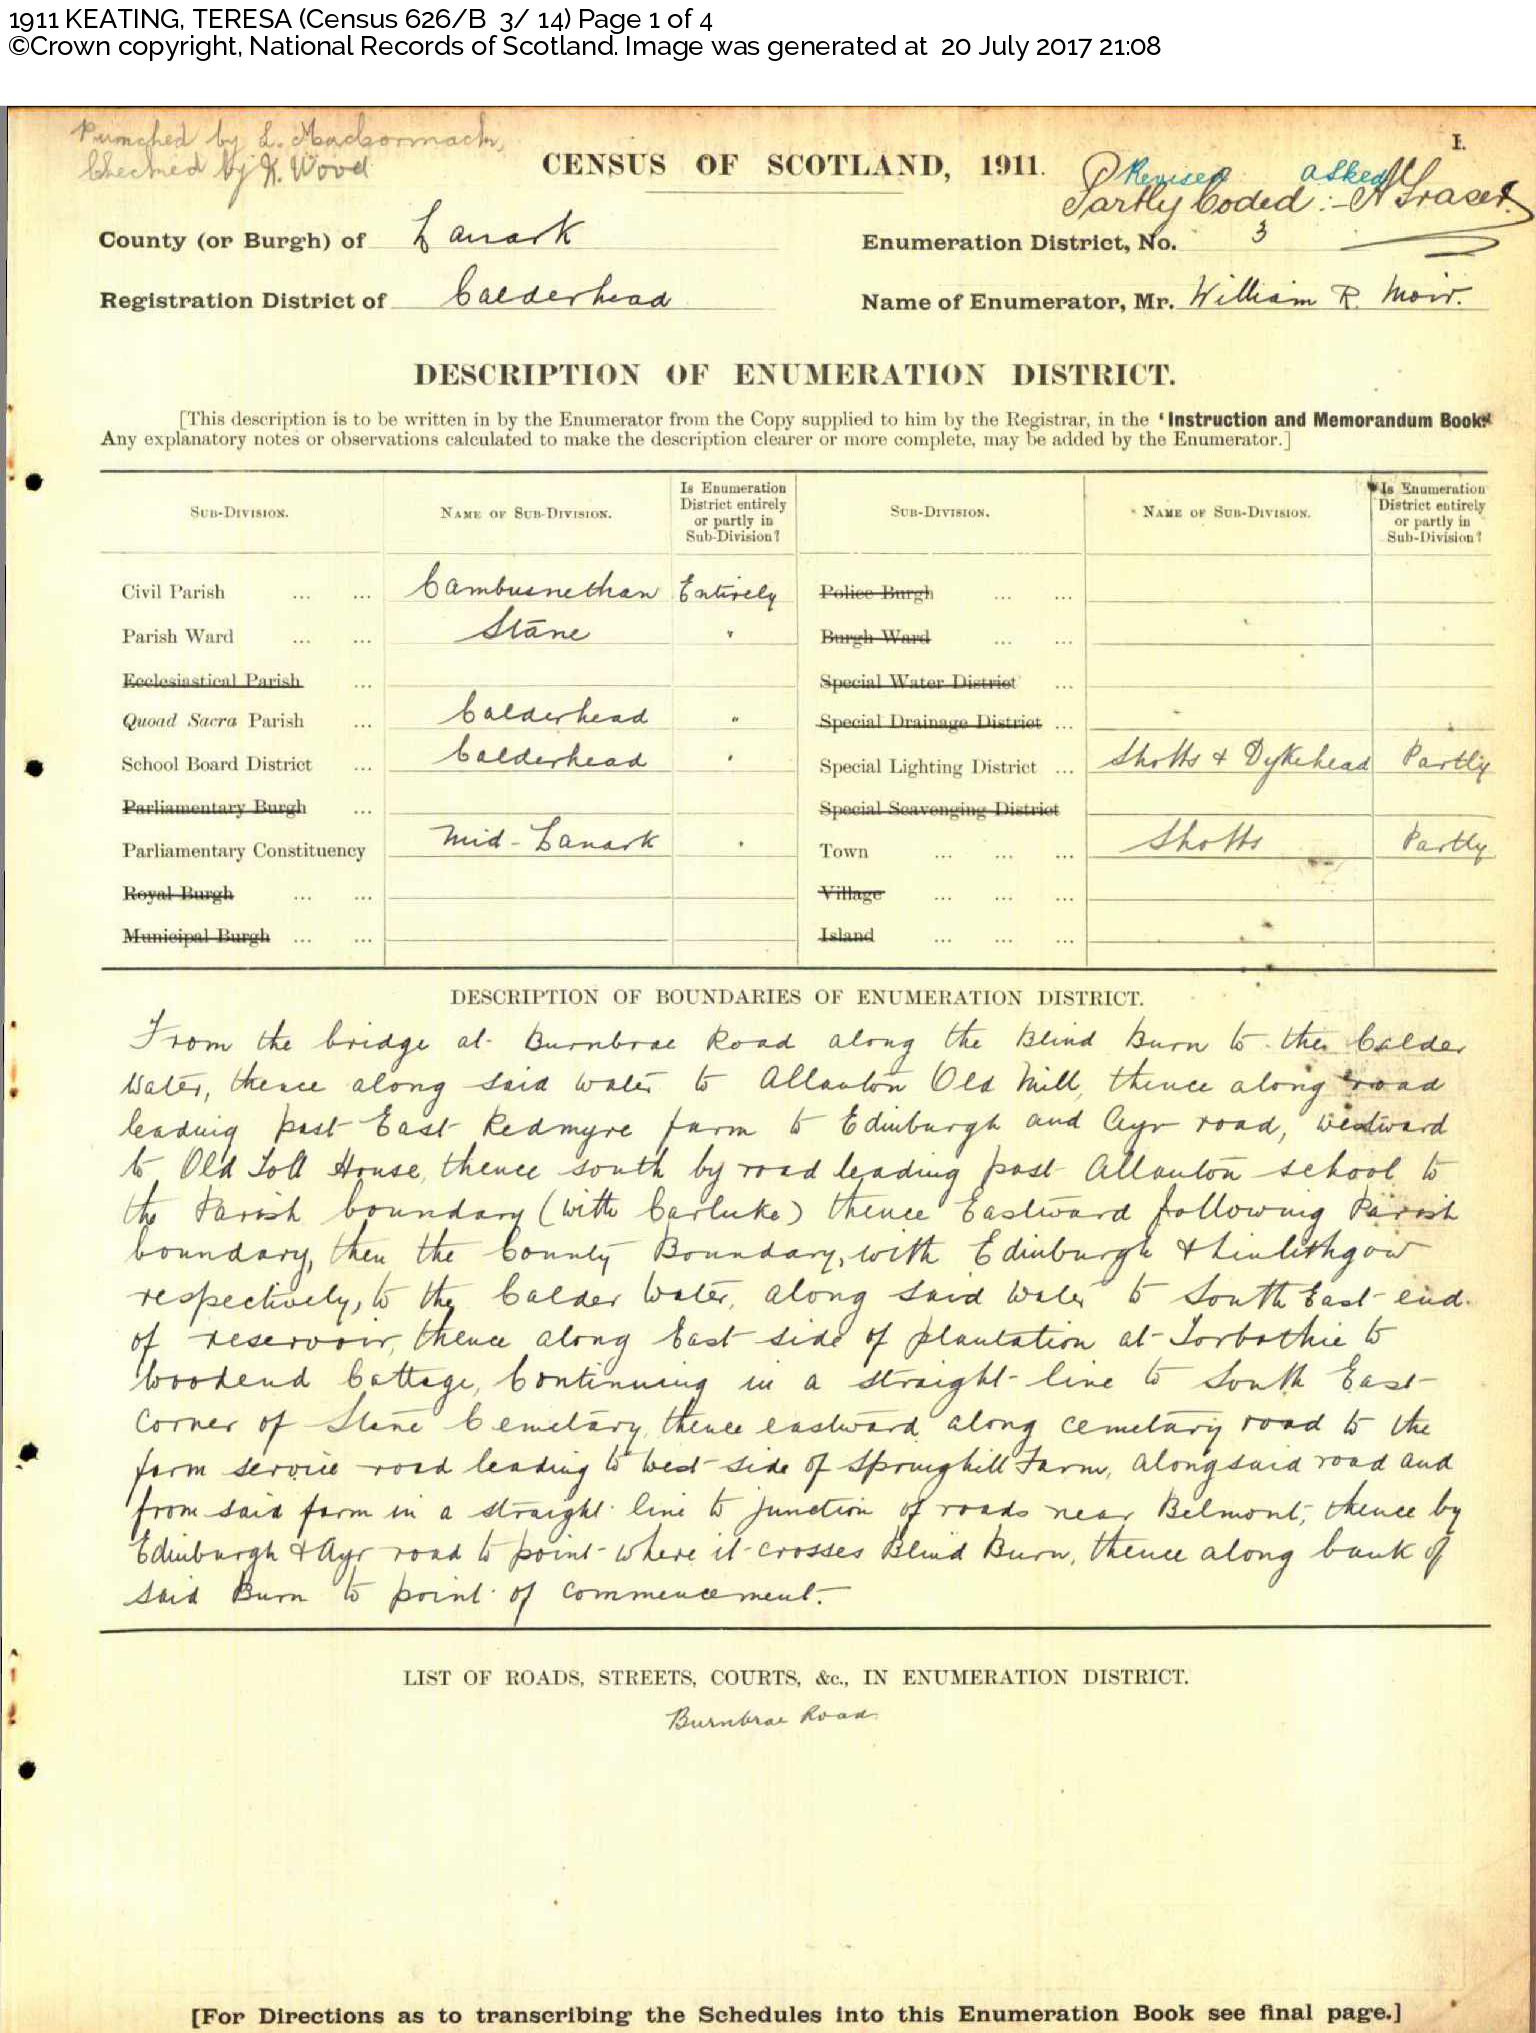 1911 KEATING, TERESA (Census 626/B 3/ 14) Page 1 of 4
©Crown copyright, National Records of Scotland. Image was generated at 20 July 2017 21:08
Punched by L. MacCormack,
Checked by K. Wood
I.
CENSUS OF SCOTLAND, 1911.
Revised asked
Partly Coded :- Fraser.
County (or Burgh) of Lanark
Enumeration District, No. 3
Registration District of Calderhead
Name of Enumerator, Mr. William R. Moir.
DESCRIPTION OF ENUMERATION DISTRICT.
[This description is to be written in by the Enumerator from the Copy supplied to him by the Registrar, in the 'Instruction and Memorandum Book.'
Any explanatory notes or observations calculated to make the description clearer or more complete, may be added by the Enumerator.]
SUB-DIVISION. NAME OF SUB-DIVISION. Is Enumeration District entirely or partly in Sub-Division? SUB-DIVISION. NAME OF SUB-DIVISION. Is Enumeration District entirely or partly in Sub-Division?
Civil Parish ... ... Cambusnethan Entirely Police Burgh ... ...
Parish Ward ... ... Stane " Burgh Ward ... ...
Ecclesiastical Parish ... Special Water District ...
Quoad Sacra Parish ... Calderhead " Special Drainage District ...
School Board District ... Calderhead " Special Lighting District ... Shotts & Dykehead Partly
Parliamentary Burgh ... Special Scavenging District
Parliamentary Constituency Mid-Lanark " Town ... ... ... Shotts Partly
Royal Burgh ... ... Village ... ... ...
Municipal Burgh ... ... Island ... ... ...
DESCRIPTION OF BOUNDARIES OF ENUMERATION DISTRICT.
From the bridge at Burnbrae Road along the Blind Burn to the Calder
Water, thence along said water to Allanton Old Mill, thence along road
leading past East Redmyre farm to Edinburgh and Ayr road, westward
to Old Toll House, thence south by road leading past Allanton school to
the Parish boundary (with Carluke) thence Eastward following Parish
boundary, then the County Boundary, with Edinburgh & Linlithgow
respectively, to the Calder Water, along said Water to South East end
of reservoir, thence along East side of plantation at Torbothie to
Woodend Cottage, Continuing in a straight line to South East
Corner of Stane Cemetary, thence eastward along cemetary road to the
farm service road leading to West side of Springhill Farm, along said road and
from said farm in a straight line to junction of roads near Belmont, thence by
Edinburgh & Ayr road to point where it crosses Blind Burn, thence along bank of
said Burn to point of commencement.
LIST OF ROADS, STREETS, COURTS, &c., IN ENUMERATION DISTRICT.
Burnbrae Road.
[For Directions as to transcribing the Schedules into this Enumeration Book see final page.]